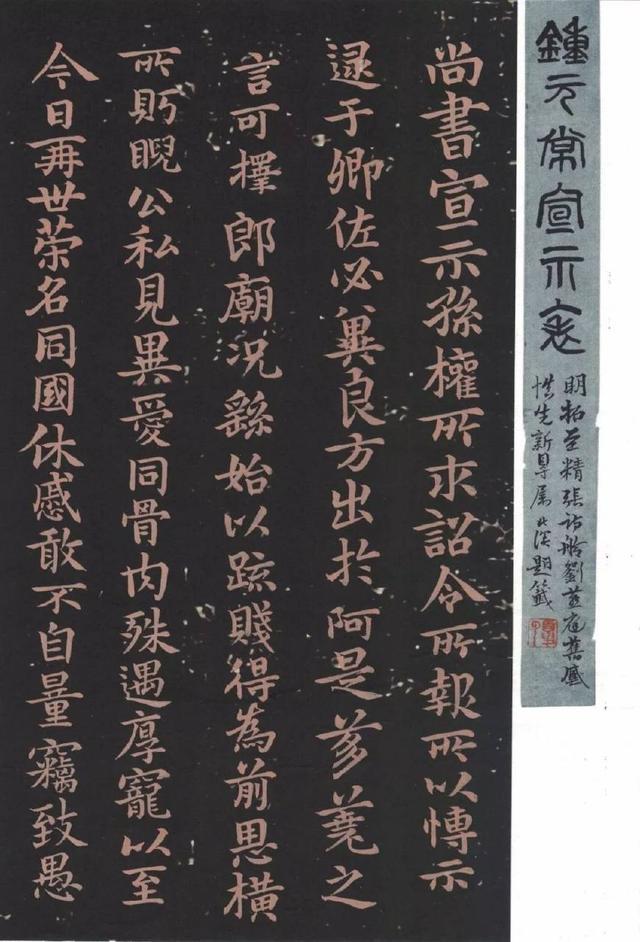 鍾元常宣示表
明拓至精張詩舲劉燕庭舊藏
惜先新尋屬題籤
尚書宣示孫權所求詔令所報所以博示
逮于卿佐必冀良方出於阿是芻蕘之
言可擇郎廟況繇始以疏賤得為前恩橫
所眄睨公私見異愛同骨肉殊遇厚寵以至
今日再世榮名同國休慼敢不自量竊致愚